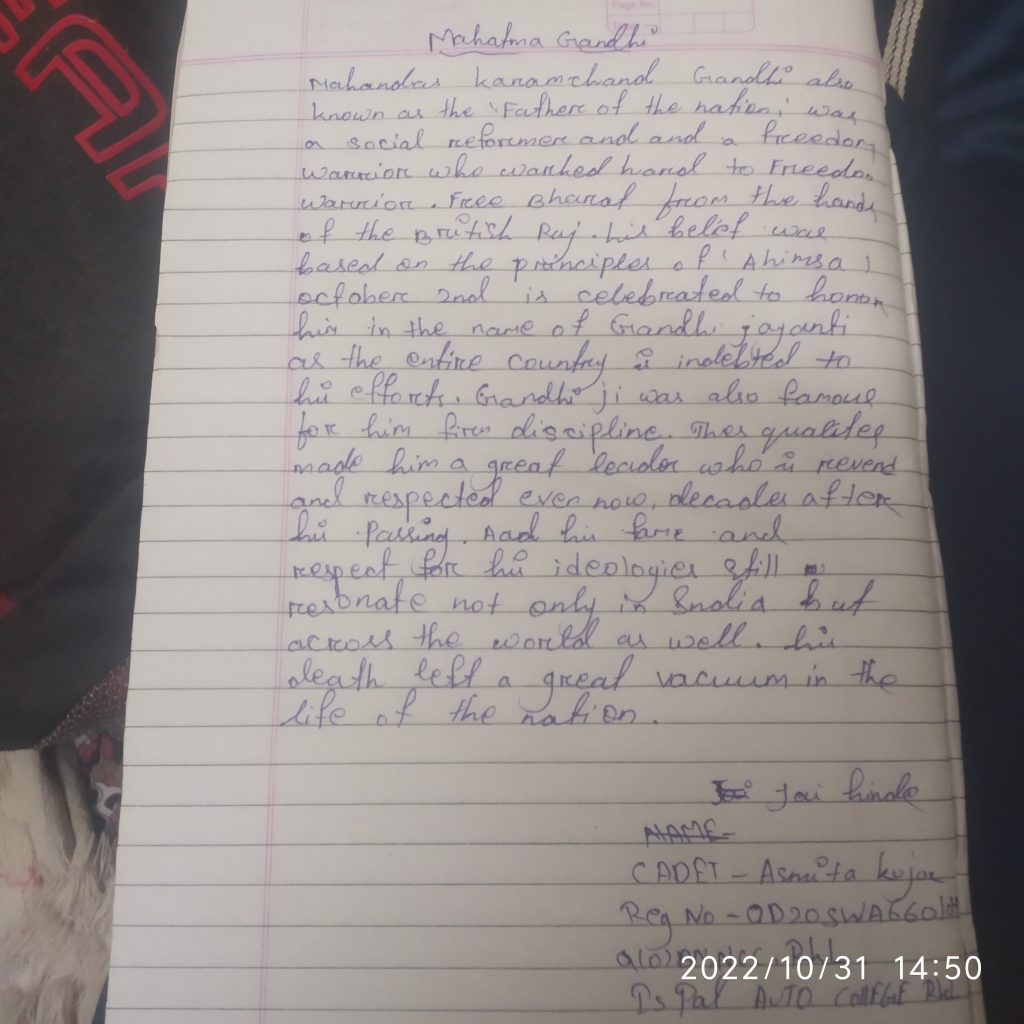 Page No.
Mahatma Gandhi
Mahandas karamchand Gandhi also
known as the 'Father of the nation,' was
a social reformer and and a freedom
warrior who worked hard to Freedom
warrior. Free Bharat from the hands
of the British Raj. his belief was
based on the principles of 'Ahimsa'
october 2nd is celebrated to honor
him in the name of Gandhi jayanti
as the entire country is indebted to
his efforts. Gandhi ji was also famous
for him firm discipline. Thes qualites
made him a great leador who is reverd
and respected even now, decades after
his Passing. Aad his fame and
respect for his ideologies still
resonate not only in India but
across the world as well. his
death left a great vacuum in the
life of the nation.
Jai hinde
NAME-
CADET - Asmita kujar
Reg No - OD20SWA6601
2022/10/31 14:50
Is Pat AUTO COllEGE Rkl